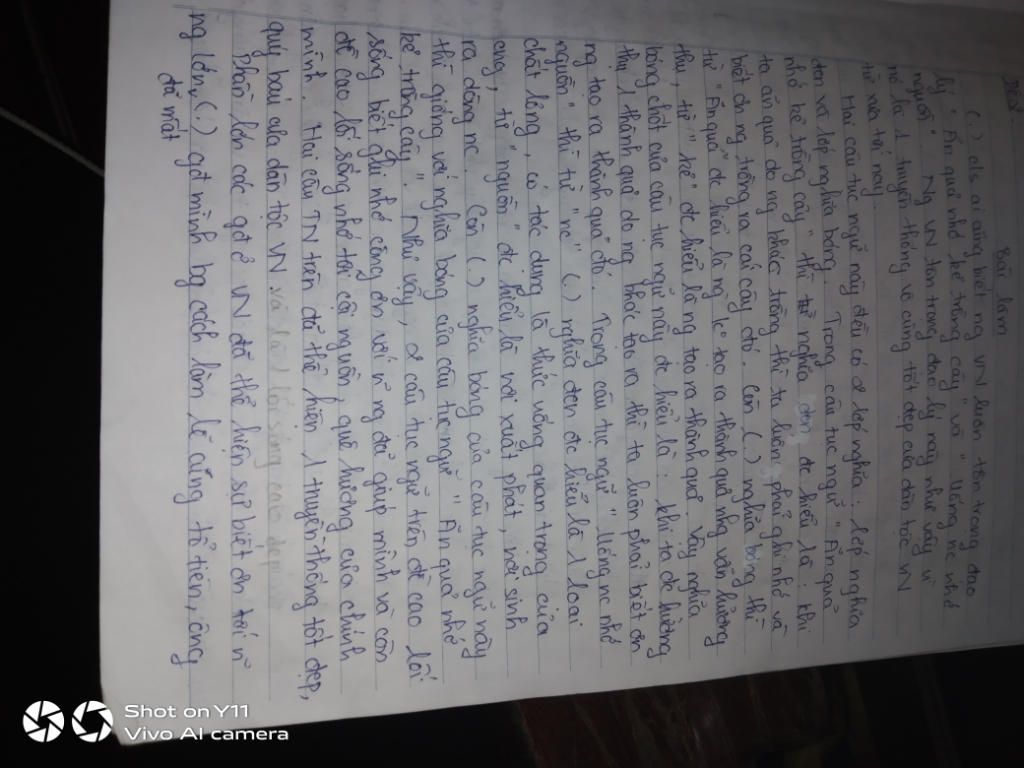 Bài làm
(.) c/s ai cũng biết ng VN luôn tôn trọng đạo
lý " Ăn quả nhớ kẻ trồng cây " và " Uống nc nhớ
nguồn ". Ng VN tôn trọng đạo lý này như vậy vì
nó là 1 truyền thống vô cùng tốt đẹp của dân tộc VN
từ xưa tới nay.
Hai câu tục ngữ này đều có 2 lớp nghĩa : lớp nghĩa
đen và lớp nghĩa bóng. Trong câu tục ngữ " Ăn quả
nhớ kẻ trồng cây " thì nghĩa đen đc hiểu là : khi
ta ăn quả do ng khác trồng thì ta luôn phải ghi nhớ và
biết ơn ng trồng ra cái cây đó. Còn (.) nghĩa bóng thì
từ " Ăn quả " đc hiểu là ng k tạo ra thành quả nhg vẫn hưởng
thụ, từ " kẻ " đc hiểu là ng tạo ra thành quả. Vậy nghĩa
bóng chốt của câu tục ngữ này đc hiểu là : khi ta đc hưởng
thụ 1 thành quả do ng khác tạo ra thì ta luôn phải biết ơn
ng tạo ra thành quả đó. Trong câu tục ngữ " Uống nc nhớ
nguồn " thì từ " nc " (.) nghĩa đen đc hiểu là 1 loại
chất lỏng, có tác dụng là thức uống quan trọng của
cng, từ " nguồn " đc hiểu là nơi xuất phát, nơi sinh
ra dòng nc. Còn (.) nghĩa bóng của câu tục ngữ này
thì giống với nghĩa bóng của câu tục ngữ " Ăn quả nhớ
kẻ trồng cây ". Như vậy, 2 câu tục ngữ trên đề cao lối
sống biết ghi nhớ công ơn với n~ ng đã giúp mình và còn
đề cao lối sống nhớ tới cội nguồn, quê hương của chính
mình. Hai câu TN trên đã thể hiện 1 truyền thống tốt đẹp,
quý báu của dân tộc VN và là 1 lối sống cao đẹp
Phần lớn các gđ ở VN đã thể hiện sự biết ơn tới n~
ng lớn (.) gđ mình bg cách làm lễ cúng tổ tiên, ông
đã mất